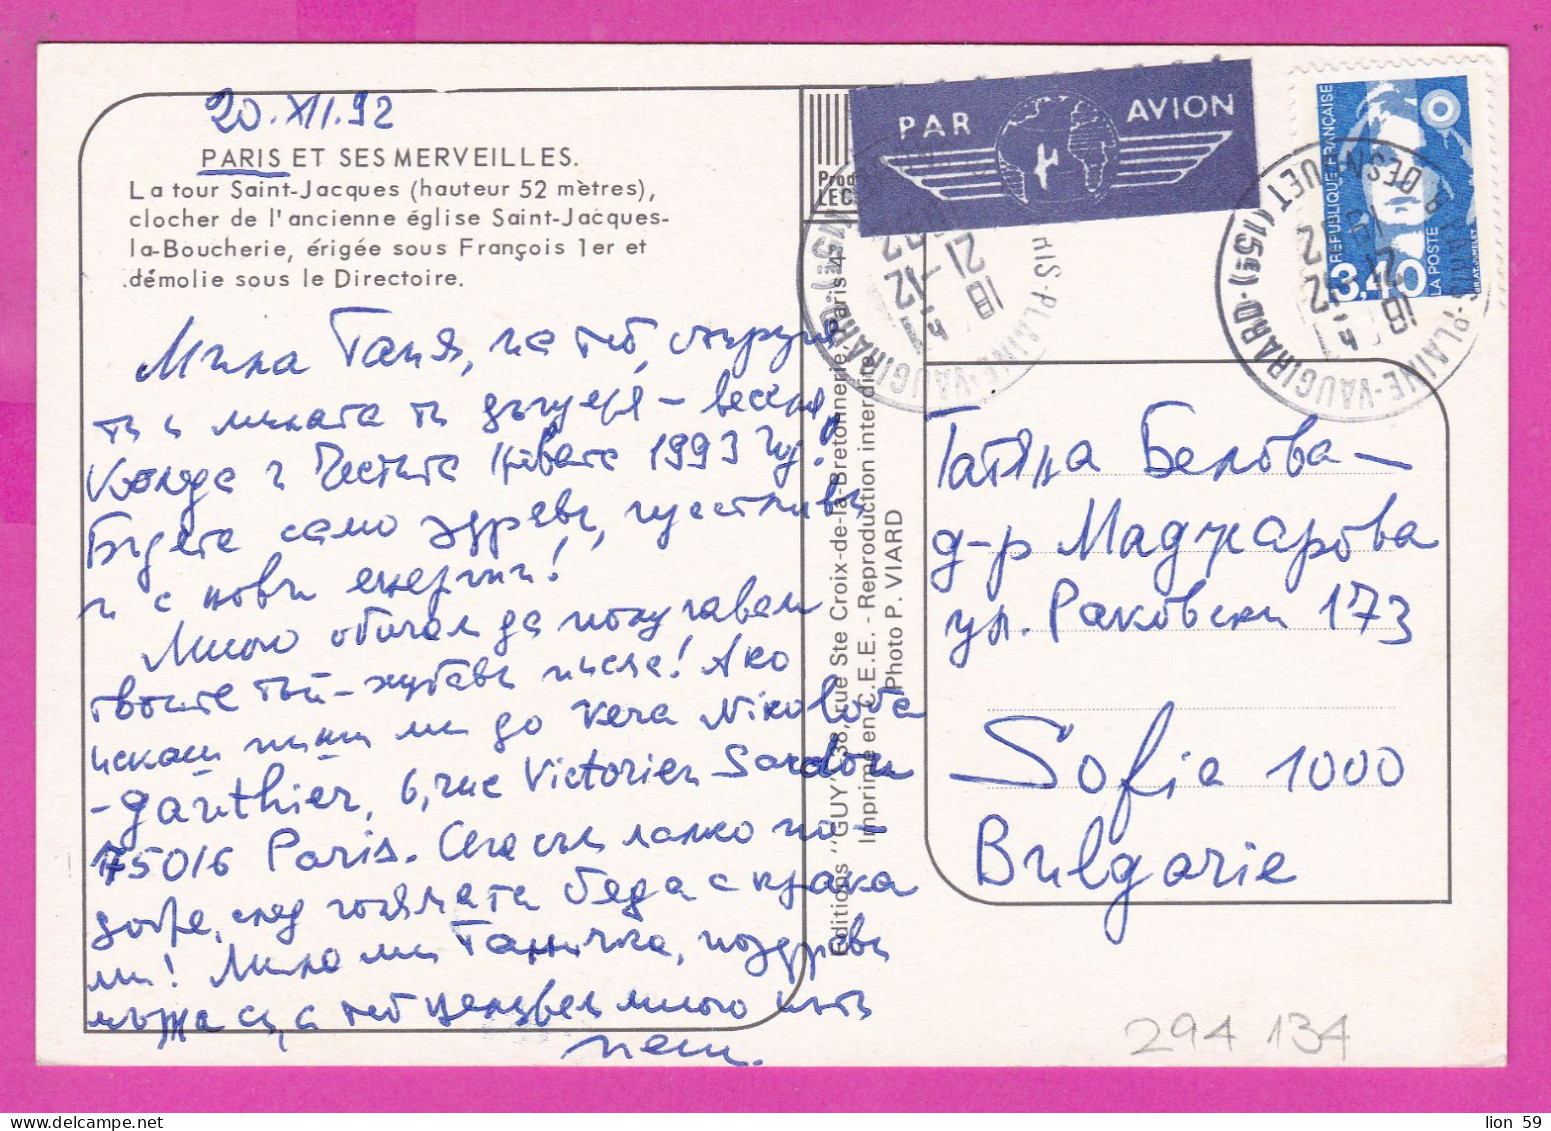 20.XII.92
PARIS ET SES MERVEILLES.
La tour Saint-Jacques (hauteur 52 mètres),
clocher de l'ancienne église Saint-Jacques-
la-Boucherie, érigée sous François 1er et
démolie sous le Directoire.
Мила Таня, на теб, съпруга
ти и милата ти дъщеря – весела
Коледа и Честита Новата 1993 год!
Бъдете само здрави, щастливи
и с нови енергии!
Много обичам да получавам
твоите писма! Ако
искаш пиши ми до Nikolova
-Gauthier, 6, rue Victorien Sardou
75016 Paris. Сега съм малко по-
добре, след голямата беда с крака
ми! Мила ми Таничка, поздрави
мъжа си, а теб целувам много пъти
Editions "GUY" 38, rue Ste Croix-de-la-Bretonnerie-Paris 4
Imprimé en C.E.E. - Reproduction interdite
Photo P. VIARD
PAR AVION
REPUBLIQUE FRANÇAISE
3,40
LA POSTE
PLAINE-VAUGIRARD
18
21-12
1992
Татяна Белова –
д-р Маджарова
ул. Раковски 173
Sofia 1000
Bulgarie
294 134
lion 59